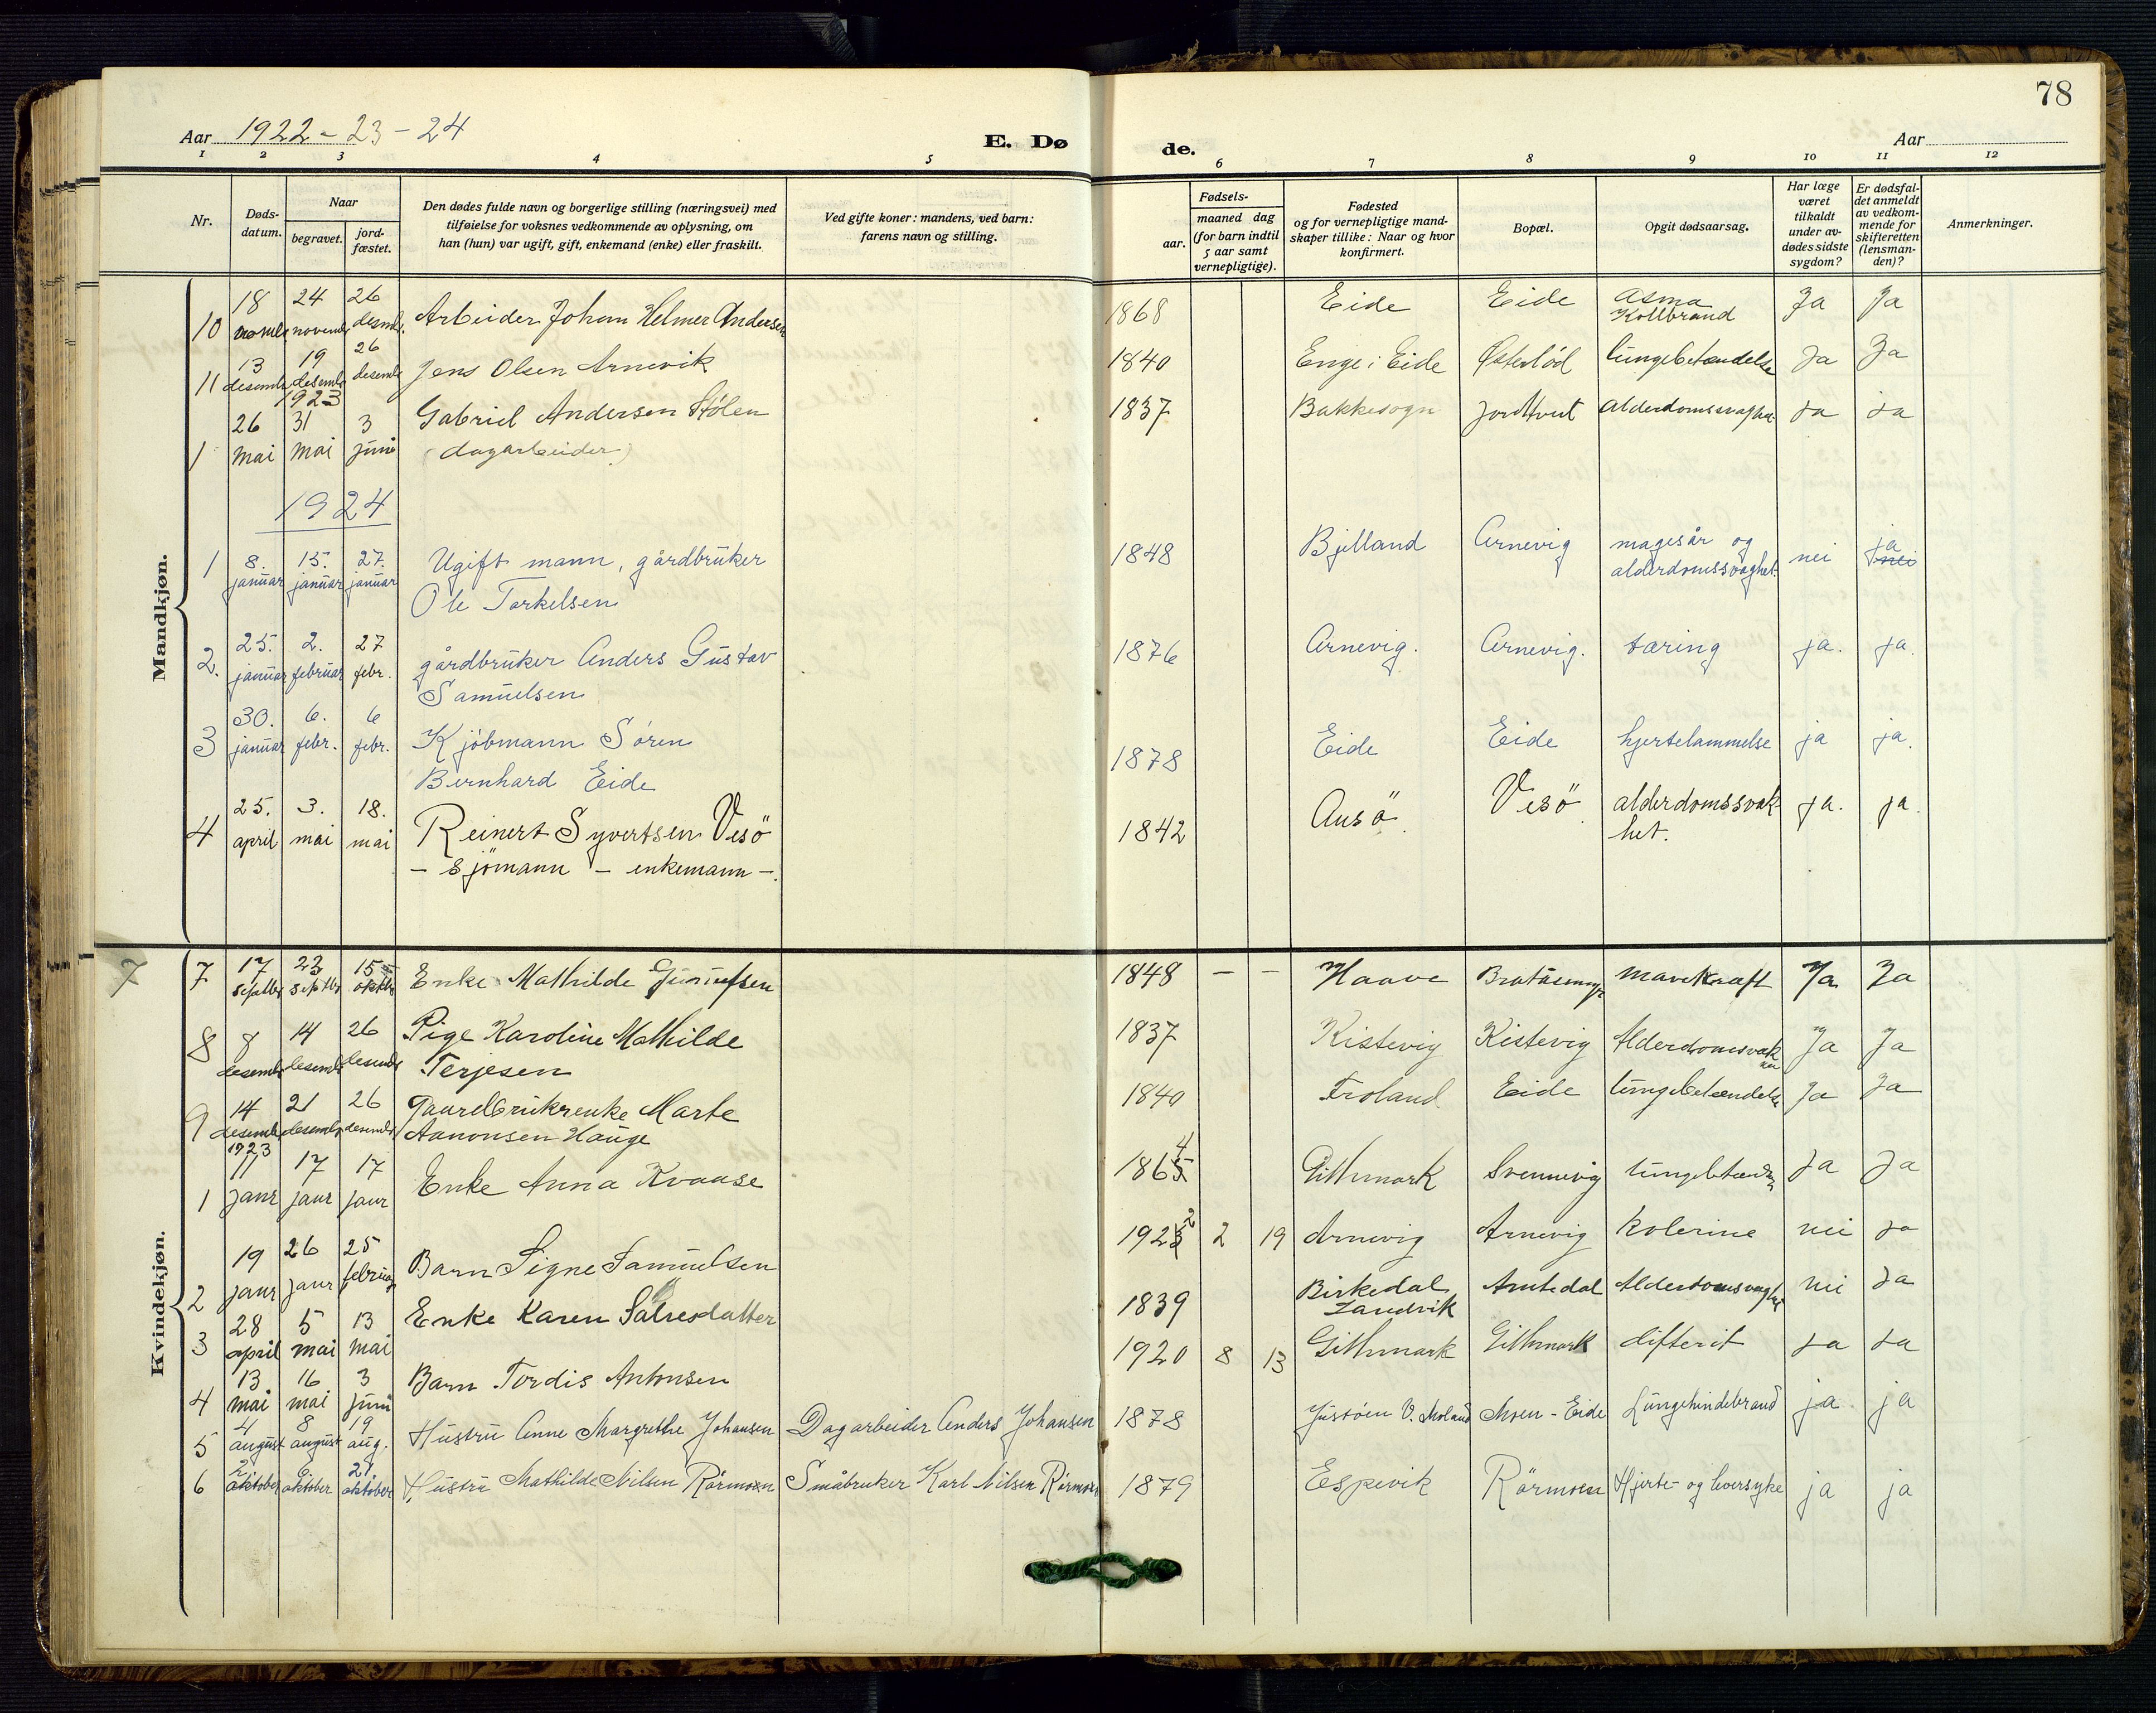 78
Aar 1922 - 23 - 24
E. Dø
de.
Aar
1 2 3 4 5 6 7 8 9 10 11 12
Nr.
Døds-
datum.
Naar
begravet.
jord-
fæstet.
Den dødes fulde navn og borgerlige stilling (næringsvei) med
tilføielse for voksnes vedkommende av oplysning, om
han (hun) var ugift, gift, enkemand (enke) eller fraskilt.
Ved gifte koner: mandens, ved barn:
farens navn og stilling.
Fødsels-
aar.
maaned dag
(for barn indtil
5 aar samt
vernepligtige).
Fødested
og for vernepligtige mand-
skaper tillike: Naar og hvor
konfirmert.
Bopæl.
Opgit dødsaarsag.
Har læge
været
tilkaldt
under av-
dødes sidste
sygdom?
Er dødsfal-
det anmeldt
av vedkom-
mende for
skifteretten
(lensman-
den)?
Anmerkninger.
Mandkjøn.
10 18 24 novembr 26 desmbr. Arbeider Johan Helmer Andersen 1868 Eide Eide Asma Koldbrand Ja Ja
11 13 desembr 19 desembr 26 desembr Jens Olsen Arnevik 1840 Enge i Eide Østerhød lungebetændelse Ja Ja
1923
1 26 mai 31 mai 3 juni Gabriel Andersen Stølen 1837 Bakkesogn alderdomssvaghet ja ja
(dagarbeider)
1924
1 8. januar 15. januar 27. januar Ugift mann, gårdbruker 1848 Bjelland Arnevig magesår og nei ja nei
Ole Torkelsen alderdomssvaghet.
2. 25. januar 2. februar 27 febr. gårdbruker Anders Gustav 1876 Arnevig. Arnevig. tæring ja. ja.
Samuelsen
3 30. januar 6. febr. 6 febr. Kjöbmann Sören 1878 Eide Eide hjertelammelse ja ja.
Bernhard Eide
4 25. april 3. mai 18. mai Reinert Syvertsen Vesö 1842 Ausö. Vesö. alderdomssvak- ja. ja.
- Sjömann - enkemann -. het.
Kvindekjøn.
7
7 17 septbr 23 septbr 15 oktbr Enke Mathilde 1848 - - Haave Mavekræft Ja Ja
8 8 desembr 14 desembr 26 desembr Pige Karoline Mathilde 1837 Kistevig Kistevig Alderdomssvak Ja Ja
Terjesen
9 14 desembr 21 desembr 26 desembr Gaardbrukrenke Marte 1840 Froland Eide lungebetændelse Ja Ja
Aanonsen Hauge
1923
1 11 janr 17 janr 17 janr Enke Anna Kvaase 1865 4 Githmark Svennevig Ja Ja
2 19 janr 26 janr 25 februar Barn Signe Samuelsen 1923 2 2 19 Arnevig Arnevig Kolerine nei ja
3 28 april 5 mai 13 mai Enke Karen Salvesdatter 1839 Birkedal Landvik Alderdomsvaghet nei Ja
4 13 mai 16 mai 3 juni Barn Tordis Antonsen 1920 8 13 Githmark Githmark difterit ja ja
5 4 august 8 august 19 aug. Hustru Anne Margrethe Johansen Dagarbeider Anders Johansen 1878 Justöen V. Moland Moen - Eide Lungehindebrand ja ja
6 2 oktober 6 oktober 21 oktober Hustru Mathilde Nilsen Rörmoen Småbruker Karl Nilsen Rörmoen 1879 Espevik Rörmoen Hjerte- og leversyke ja ja